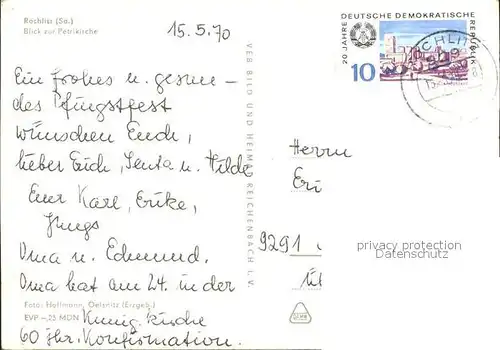 Rochlitz (Sa.)
Blick zur Petrikirche
15.5.70
Ein frohes u. gesun-
des Pfingstfest
wünschen Euch,
lieber Erich, Senta u. Hilde
Eure Karl, Erike,
Jungs
Oma u. Edmund.
Oma hat am 24. in der
Foto: Hoffmann, Oelsnitz (Erzgeb.)
EVP –,25 MDN Kunig. kirche
60 jhr. Konfirmation.
VEB BILD UND HEIMAT REICHENBACH I. V.
20 JAHRE DEUTSCHE DEMOKRATISCHE REPUBLIK
10
Herrn
Eri
9291
privacy protection
Datenschutz